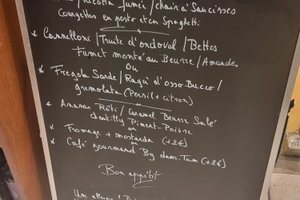 /Ricotta fumée / chair à Saucisses
Courgettes en pesto et en Spaghetti
* Cannelloni / Truite d'ondoval / Bettes
Fumet monté au Beurre / Amandes
ou
* Fregola Sarde / Ragù d'osso Bucco /
gremolata (Persil + citron)
* Ananas Rôti / Caramel Beurre Salé
chantilly Piment-Poivre
ou
* Fromage + mostarda (+2€)
ou
* Café gourmand By dam.Tam (+2€)
Bon appétit